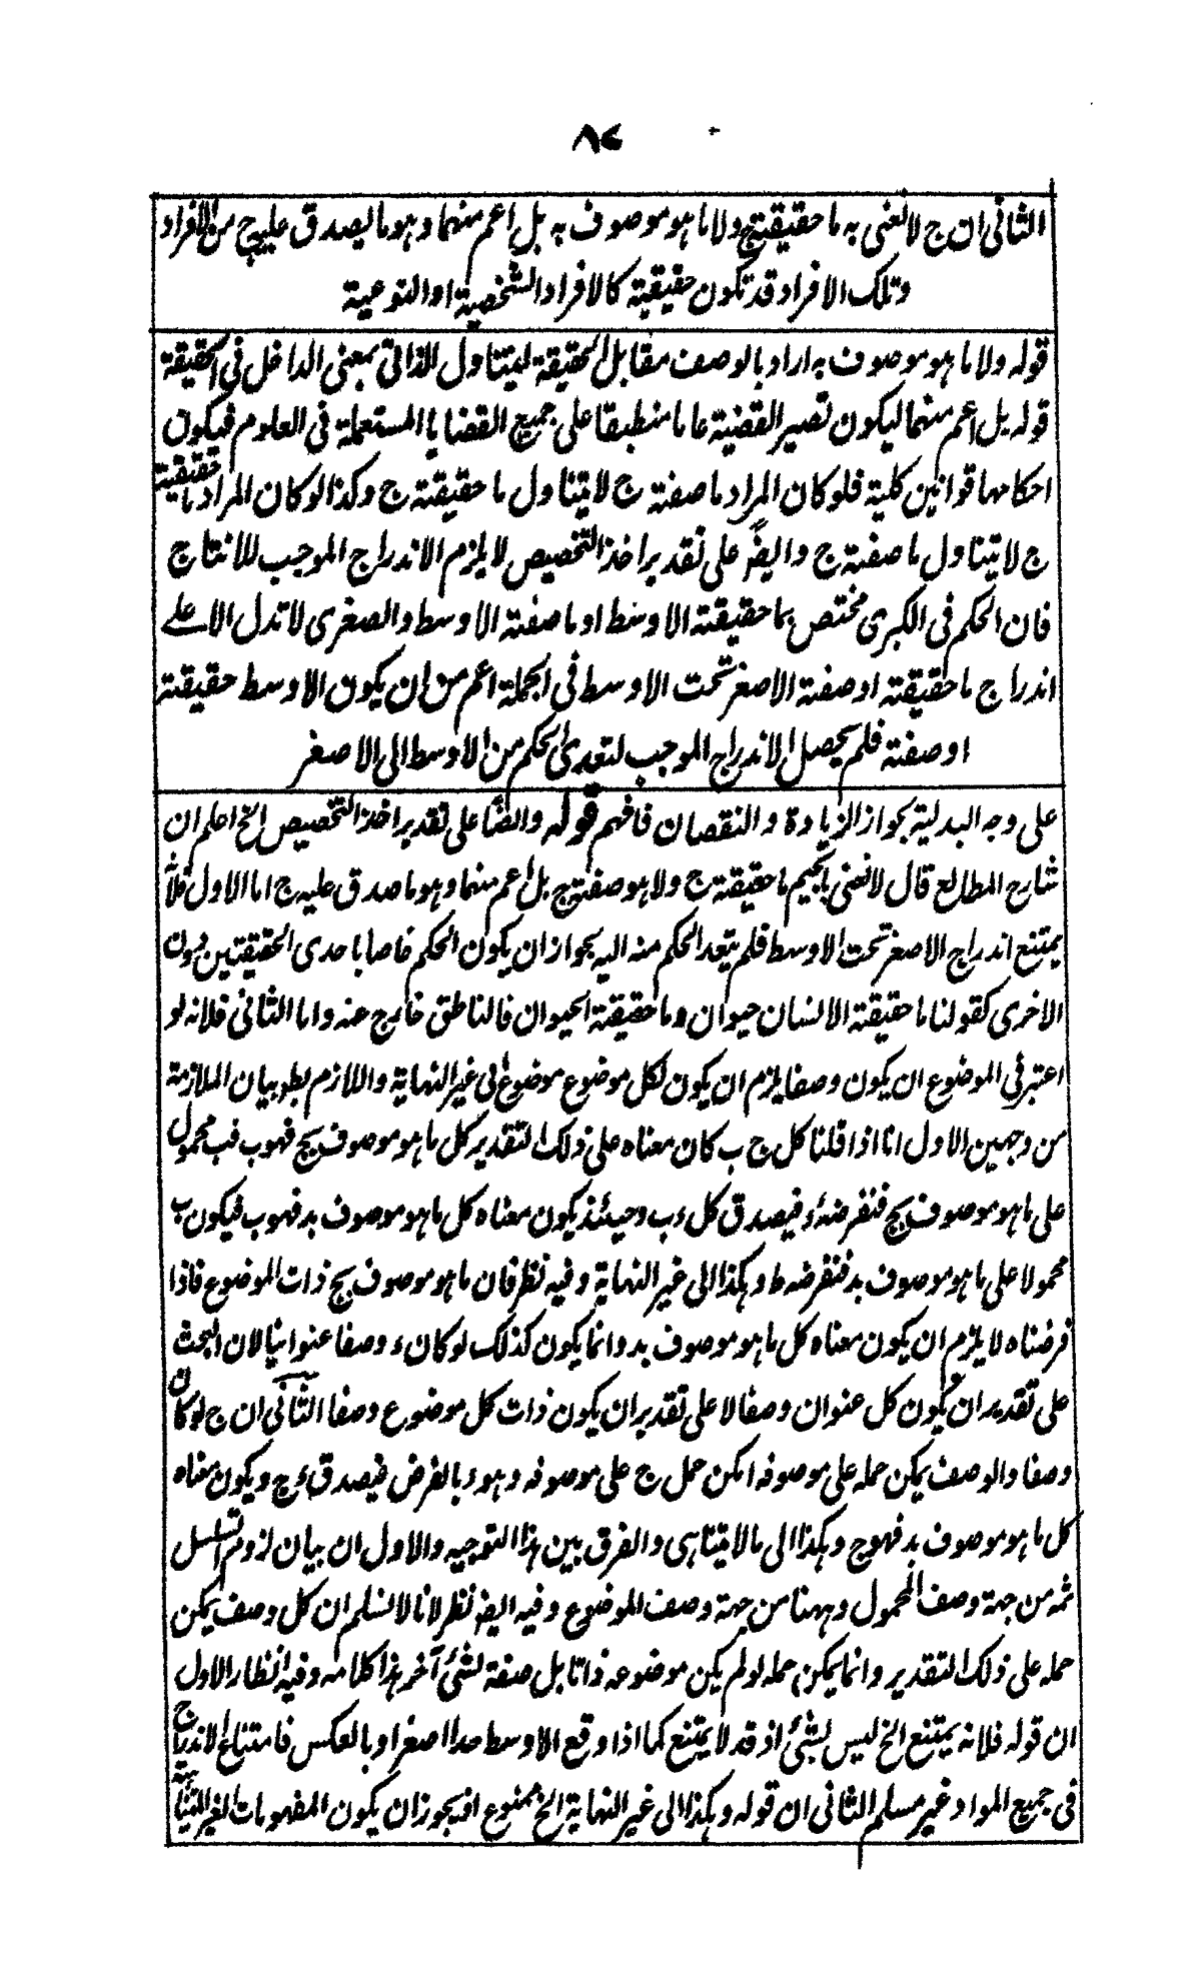 ٨٤
الثانی ان ج لا نعنی به ما حقیقتة ج ولا ما هو موصوف به بل اعم منهما وهو ما یصدق علیه ج من الافراد
وتلک الافراد قد تکون حقیقیة کالافراد الشخصیة او النوعیة
قوله ولا ما هو موصوف به اراد بالوصف مقابل الحقیقة لیتناول الذاتی بمعنی الداخل فی الحقیقة
قوله بل اعم منهما لیکون تصیر القضیة عاما منطبقا علی جمیع القضایا المستعملة فی العلوم فیکون
احکامها قوانین کلیة فلو کان المراد ما صفته ج لا یتناول ما حقیقته ج وکذا لو کان المراد ما حقیقته
ج لا یتناول ما صفته ج وایضا علی تقدیر اخذ التخصیص لا یلزم الاندراج الموجب للانتاج
فان الحکم فی الکبری مختص بما حقیقته الاوسط او ما صفته الاوسط والصغری لا تدل الا علے
اندراج ما حقیقته او صفته الاصغر تحت الاوسط فی الجملة اعم من ان یکون الاوسط حقیقته
او صفته فلم یحصل الاندراج الموجب لتعدی الحکم من الاوسط الی الاصغر
علی وجه البدلیة بجواز الزیادة والنقصان فافهم قوله وایضا علی تقدیر اخذ التخصیص الخ اعلم ان
شارح المطالع قال لا نعنی بالجیم ما حقیقته ج ولا هو صفته ج بل اعم منهما وهو ما صدق علیه ج اما الاول فلانه
یمتنع اندراج الاصغر تحت الاوسط فلم یتعد الحکم منه الیه بجواز ان یکون الحکم خاصا باحدی الحقیقتین دون
الاخری کقولنا ما حقیقته الانسان حیوان وما حقیقته الحیوان فالناطق خارج عنه واما الثانی فلانه لو
اعتبر فی الموضوع ان یکون وصفا یلزم ان یکون لکل موضوع موضوع الی غیر النهایة واللازم بط وبیان الملازمة
من وجهین الاول انا اذا قلنا کل ج ب کان معناه علی ذلک التقدیر کل ما هو موصوف بج فهو ب فب محمول
علی ما هو موصوف بج فنفرضه ء فیصدق کل ء ب وحینئذ یکون معناه کل ما هو موصوف بد فهو ب فیکون ب
محمولا علی ما هو موصوف بد فنفرضه ط وهکذا الی غیر النهایة وفیه نظر فان ما هو موصوف بج ذات الموضوع فاذا
فرضناه لا یلزم ان یکون معناه کل ما هو موصوف بد وانما یکون کذلک لو کان ء وصفا عنوانیا لان البحث
علی تقدیر ان یکون کل عنوان وصفا لا علی تقدیر ان یکون ذات کل موضوع وصفا الثانی ان ج لو کان
وصفا والوصف یمکن حمله علی موصوفه امکن حمل ج علی موصوفه وهو ء بالفرض فیصدق ء ج ویکون معناه
کل ما هو موصوف بد فهو ج وهکذا الی ما لا یتناهی والفرق بین هذا التوجیه والاول ان بیان لزوم التسلسل
ثمه من جهة وصف المحمول وههنا من جهة وصف الموضوع وفیه ایضا نظر لانا لا نسلم ان کل وصف یمکن
حمله علی ذلک التقدیر وانما یمکن حمله لو لم یکن موضوعه ذاتا بل صفة لشئ آخر هذا کلامه وفیه انظار الاول
ان قوله فلانه یمتنع الخ لیس بشئ اذ قد لا یمتنع کما اذا وقع الاوسط حدا اصغر او بالعکس فامتناع الاندراج
فی جمیع المواد غیر مسلم الثانی ان قوله وهکذا الی غیر النهایة الخ ممنوع اذ یجوز ان یکون المفهومات الغیر المتناهیة